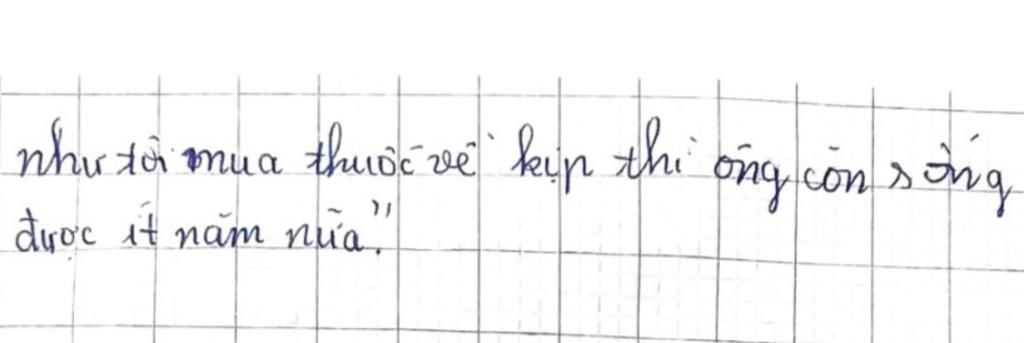 như tôi mua thuốc về kịp thì ông còn sống
được ít năm nữa."